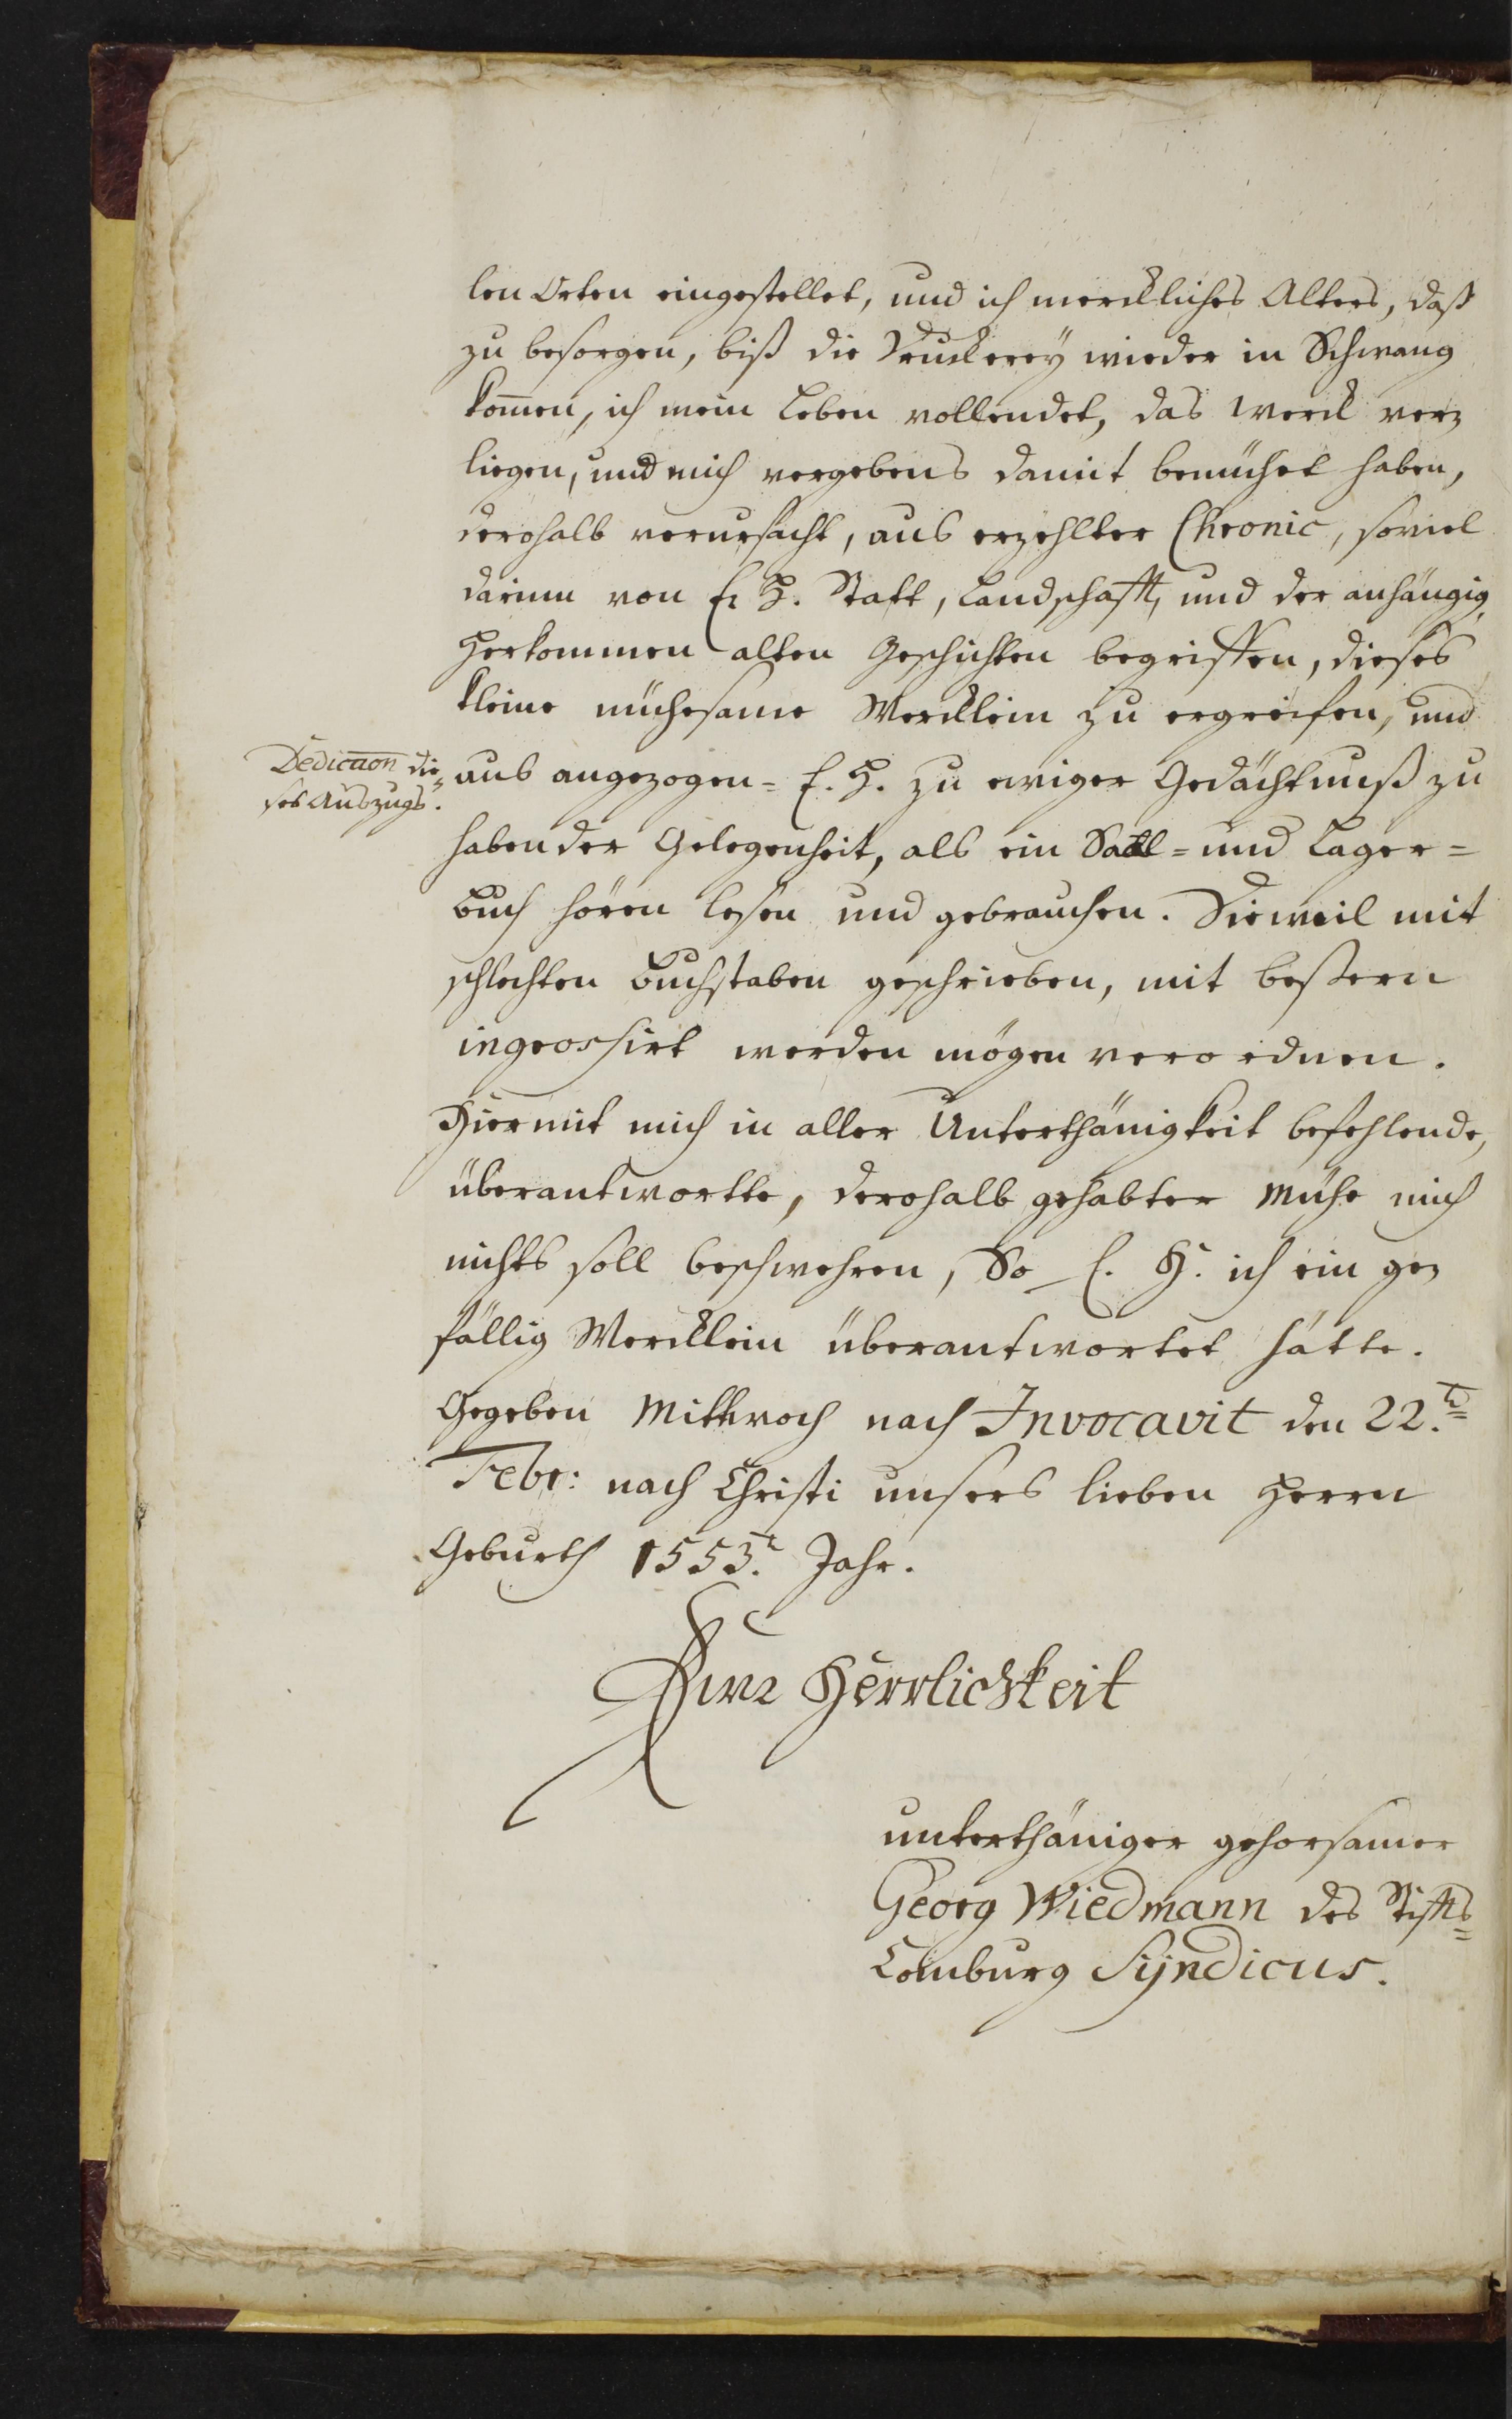 len Orten eingestellet, und ich merckliches Alters, daß
zu besorgen, biß die Druckerey wieder in Schwang
kom̃en, ich mein Leben vollendet, das werck ver-
liegen, und mich vergebens damit bemühet haben,
derohalb verursacht, aus erzehlter Chronic, soviel
darinn von E. H. Statt, Landschafft, und der anhängig,
herkommen alten Geschichten begriffen, dieses
kleine mühesame Wercklein zu ergreifen, und
Dedication die-
ses Auszugs.
aus angezogen- E. H. zu ewiger Gedächtnuß zu
haben der Gelegenheit, als ein Saal- und Lager-
buch hören lesen und gebrauchen. Dieweil mit
schlechten buchstaben geschrieben, mit beßern
ingrossirt werden mögen verordnen.
Hiermit mich in aller Unterthänigkeit befehlende,
überantwortte, derohalb gehabter Mühe mich
nichts soll beschwehren, So E. H. ich ein ge-
fällig Wercklein überantwortet hätte.
Gegeben Mittwoch nach Invocavit den 22.t
Febr: nach Christi unsers lieben Herrn
Geburth 1553.t Jahr.
Eure Herrlichkeit
unterthäniger gehorsamer
Georg Wiedmann des Stiffts
Comburg Syndicus.